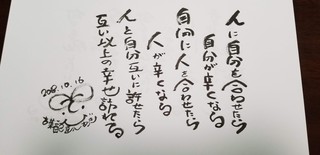 人に自分を合わせたら
自分が辛くなる
自問に人を合わせたら
人が辛くなる
人と自分互いに許せたら
互い以上の幸せ訪れてる
2018.10.16